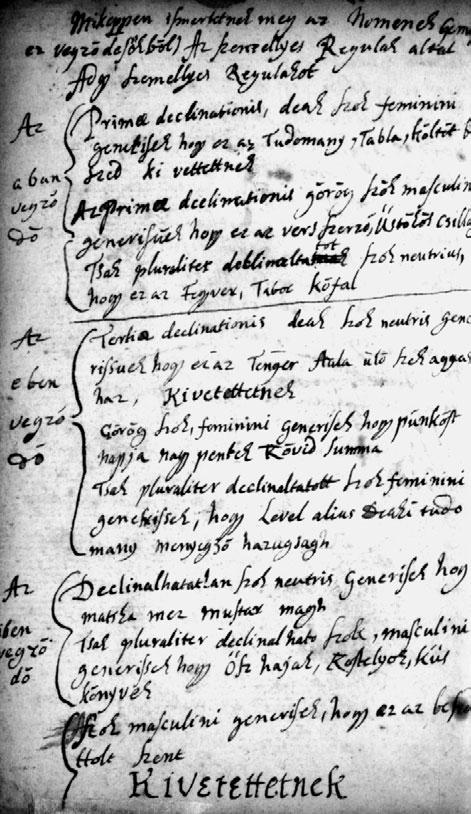 Mikeppen ismertetnek meg az Nomenek
ez vegzödesekböl) Az szemellyes Regulak altal
Adgy szemellyes Regulakot
Az a ban vegzö dö
Primæ declinationis, deak szok feminini
generisek hogy ez az Tudomany, Tabla, költöt
szed ki vettettnek
Az primæ declinationis görög szök masculini
generisüek hogy ez az vers szerzö, Üstökös csillag
Tsak pluraliter szok neutrius,
hogy ez az Fegyver, Tabor köfal
Az e ben vegzö dö
Tertiæ declinationis deak szok neutris gene
rissuek hogy ez az Tenger Aula ülö szek aggas
haz, Kivetettetnek
Görög szok, feminini generisek hogy pünköst
napja nagy pentek Rövid summa
Tsak pluraliter declinaltatott szok feminini
generissek, hogy Level alius Deaki tudo
many menyegzö hazugsagh
Az iben vegzö dö
Declinalhatatlan szok neutris Generisek hogy
matska mez mustar magh
Tsak pluraliter declinalhato szok, masculini
generissek hogy Ösz hajak, Kostelyok, kis
könyvek
szok masculini generisek, hogy ez az
ttolt szent
Kivetettetnek